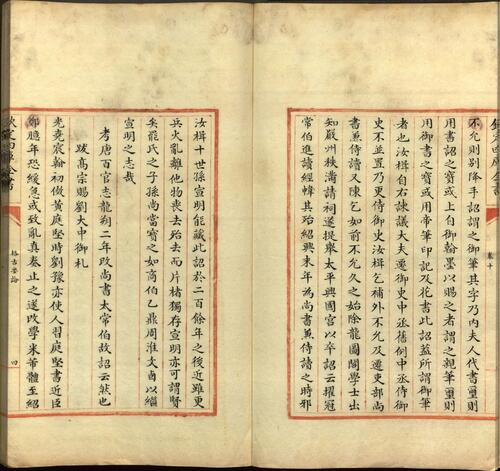 卷十
不允則别降手詔謂之御筆其字乃内夫人代書璽則
用書詔之寶或上自御翰墨以賜之者謂之親筆璽則
用御書之寶或用帝筆印記及花書此詔蓋所謂御筆
者也汝楫自右諫議大夫遷御史中丞舊例中丞侍御
史不並置乃更侍御史汝楫乞補外不允及遷吏部尚
書兼侍讀又陳乞如前不允久之始除龍圖閣學士出
知嚴州秩滿請祠遂提舉太平興國宫以卒詔云擢冠
常伯進讀經幃其殆紹興末年為尚書兼侍讀之時邪
汝楫十世孫宣明能藏此詔於二百餘年之後近雖更
兵火亂離他物喪去殆去而片楮獨存宣明亦可謂賢
矣羅氏之子孫尚當寶之如商伯乙鼎周淮父卣以繼
宣明之志哉
考唐百官志龍朔二年改尚書太常伯故詔云然也
跋高宗賜劉大中御札
光堯宸翰初倣黄庭堅時劉豫亦使人習庭堅書近臣
鄭臆年恐緩急或致亂真奏止之遂改學米芾體至紹
欽定四庫全書
格古要論
四